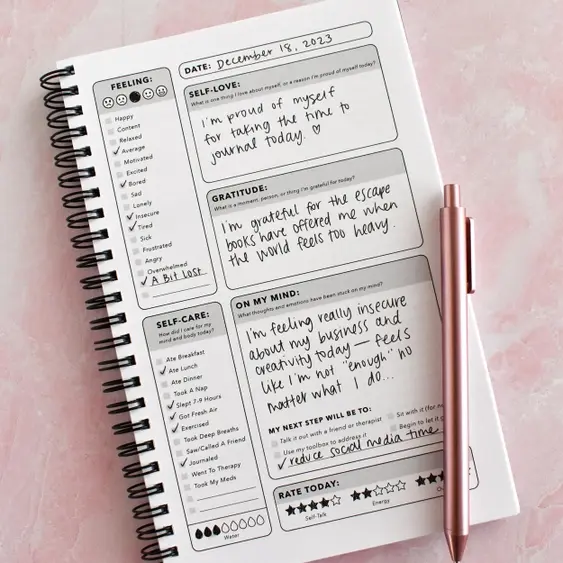 DATE: December 18, 2023
FEELING:
Happy
Content
Relaxed
Average
Motivated
Excited
Bored
Sad
Lonely
Insecure
Tired
Sick
Frustrated
Angry
Overwhelmed
A Bit Lost
SELF-LOVE:
What is one thing I love about myself, or a reason I'm proud of myself today?
I'm proud of myself
for taking the time to
journal today. ♡
GRATITUDE:
What is a moment, person, or thing I'm grateful for today?
I'm grateful for the escape
books have offered me when
the world feels too heavy.
SELF-CARE:
How did I care for my
mind and body today?
Ate Breakfast
Ate Lunch
Ate Dinner
Took A Nap
Slept 7-9 Hours
Got Fresh Air
Exercised
Took Deep Breaths
Saw/Called A Friend
Journaled
Went To Therapy
Took My Meds
Water
ON MY MIND:
What thoughts and emotions have been stuck on my mind?
I'm feeling really insecure
about my business and
creativity today — feels
like I'm not "enough" no
matter what I do...
MY NEXT STEP WILL BE TO:
Talk it out with a friend or therapist
Sit with it (for
Use my toolbox to address it
Begin to let
reduce social media time
RATE TODAY:
Self-Talk
Energy